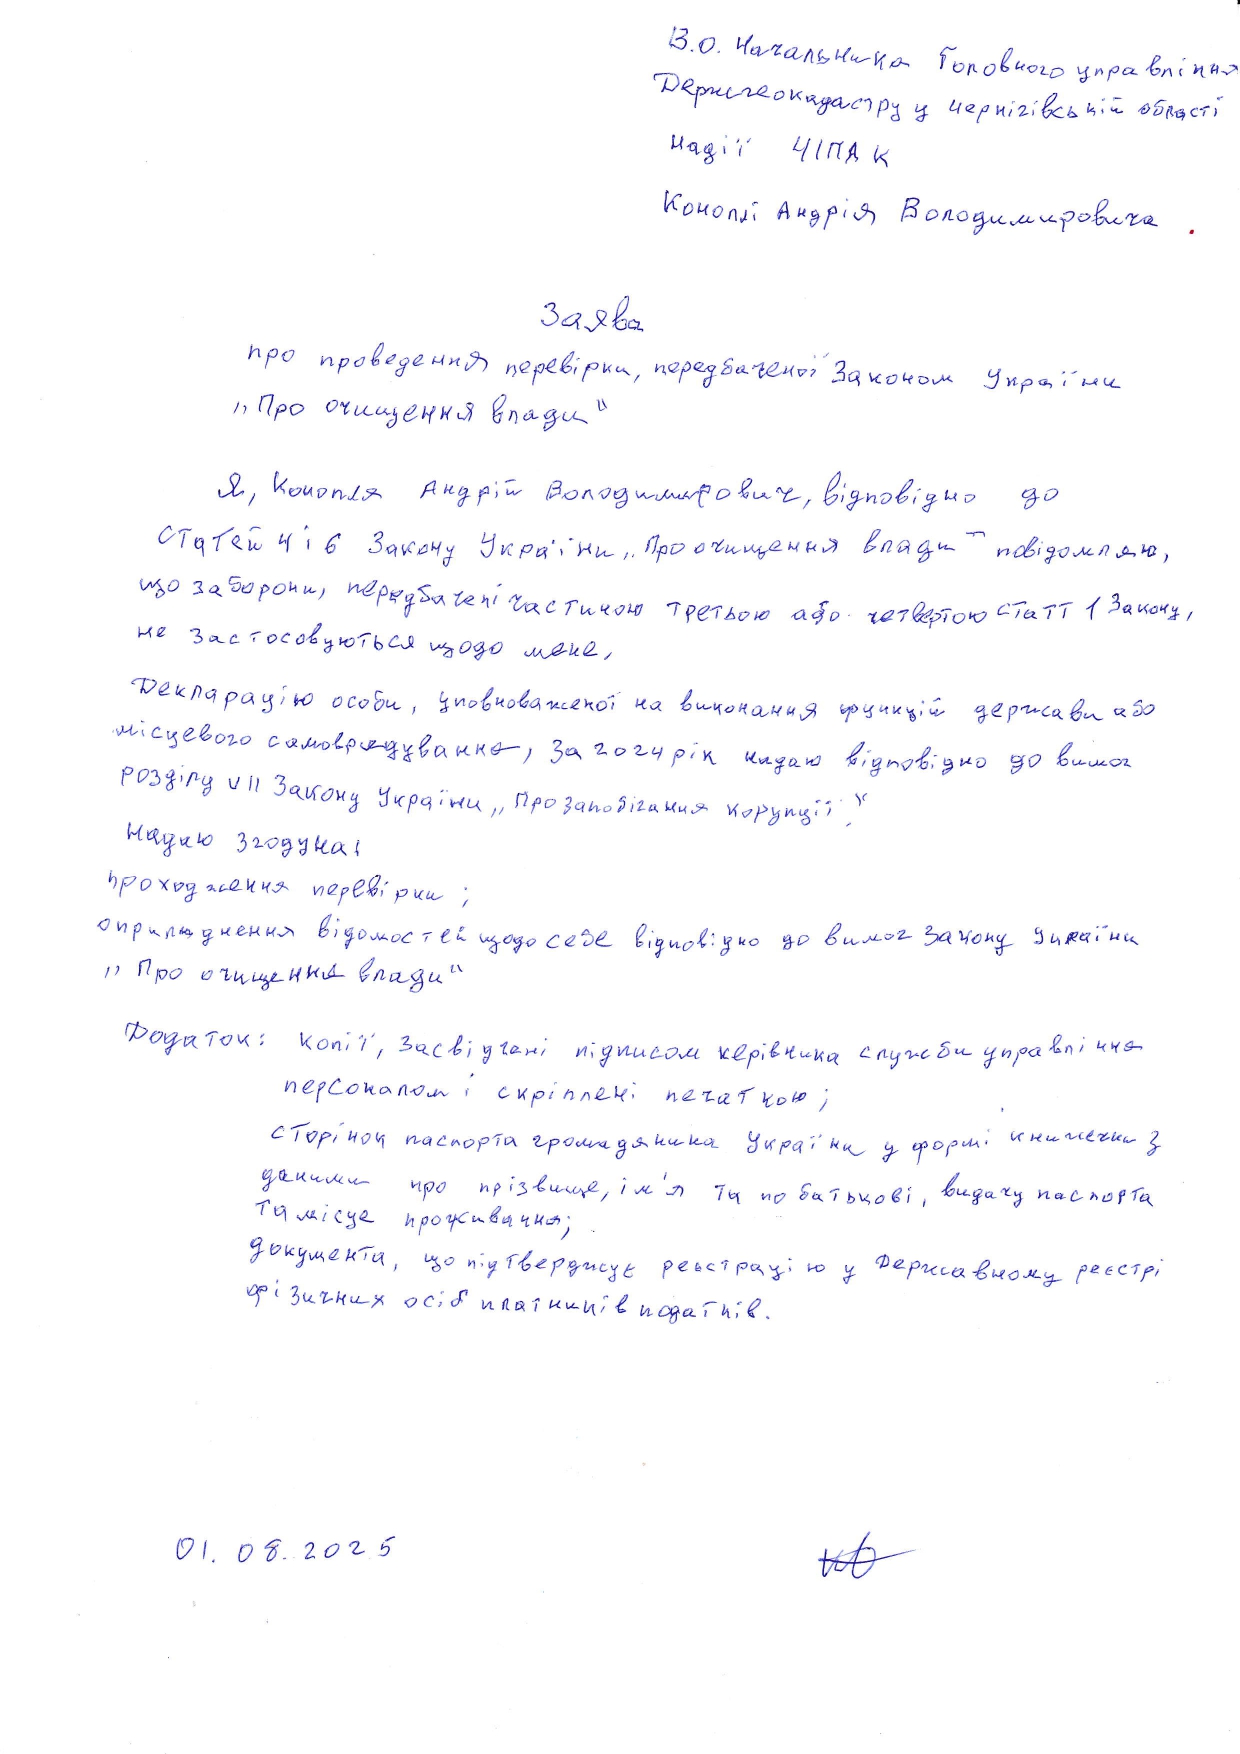 В.о. Начальника Головного управління
Держгеокадастру у Чернігівській області
Надії ЧІПАК
Коноплі Андрія Володимировича
Заява
про проведення перевірки, передбаченої Законом України
„Про очищення влади"
Я, Конопля Андрій Володимирович, відповідно до
статей 4 і 6 Закону України „Про очищення влади" повідомляю,
що заборони, передбачені частиною третьою або четвертою статт 1 Закону,
не застосовуються щодо мене,
Декларацію особи, уповноваженої на виконання функцій держави або
місцевого самоврядування, за 2024 рік надаю відповідно до вимог
розділу VII Закону України „Про запобігання корупції".
Надаю згоду на:
проходження перевірки;
оприлюднення відомостей щодо себе відповідно до вимог Закону України
„Про очищення влади"
Додаток: копії, засвідчені підписом керівника служби управління
персоналом і скріплені печаткою;
сторінок паспорта громадянина України у формі книжечки з
даними про прізвище, ім'я та по батькові, видачу паспорта
та місце проживання;
документа, що підтверджує реєстрацію у Державному реєстрі
фізичних осіб платників податків.
01.08.2025